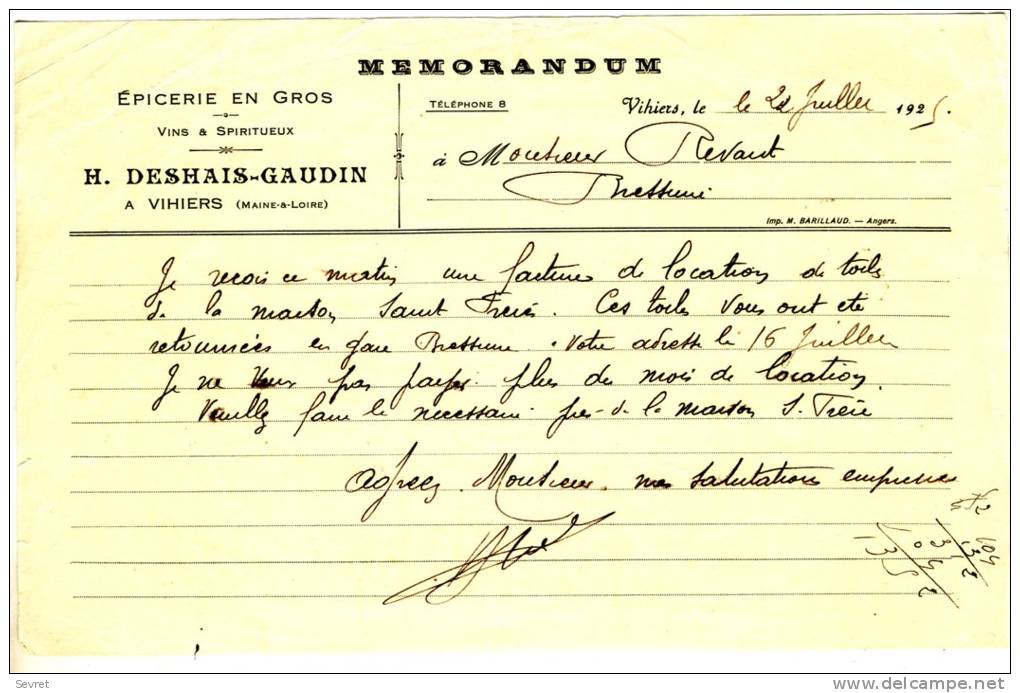 MEMORANDUM
ÉPICERIE EN GROS
VINS & SPIRITUEUX
H. DESHAIS-GAUDIN
A VIHIERS (MAINE-&-LOIRE)
TÉLÉPHONE 8
Vihiers, le le 22 Juillet 1925.
à Monsieur Revaut
Bressuire
Imp. M. BARILLAUD. — Angers.
Je reçois ce matin une facture de location de toiles
de la maison Saint Frères. Ces toiles vous ont été
retournées en gare Bressuire. votre adresse le 16 Juillet
Je ne veux pas payer plus du mois de location.
Veuillez faire le nécessaire près de la maison S. Frère
Agréez Monsieur mes salutations empressées
Sevret
www.delcampe.net